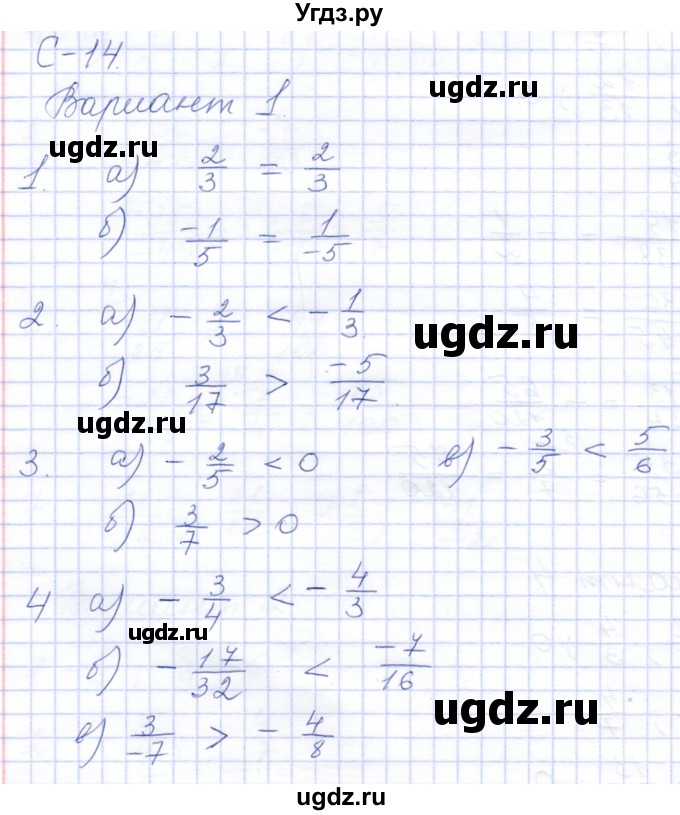 Угдз.ру
С-14.
Вариант 1.
ugdz.ru
ugdz.ru
1. а) 2/3 = 2/3
б) -1/5 = 1/-5
2. а) - 2/3 < - 1/3.
ugdz.ru
б) 3/17 > -5/17.
ugdz.ru
3. а) - 2/5 < 0 в) - 3/5 < 5/6
б) 3/7 > 0
4 а) - 3/4 < - 4/3
ugdz.ru
б) - 17/32 < -7/16
ugdz.ru
в) 3/-7 > - 4/8
ugdz.ru